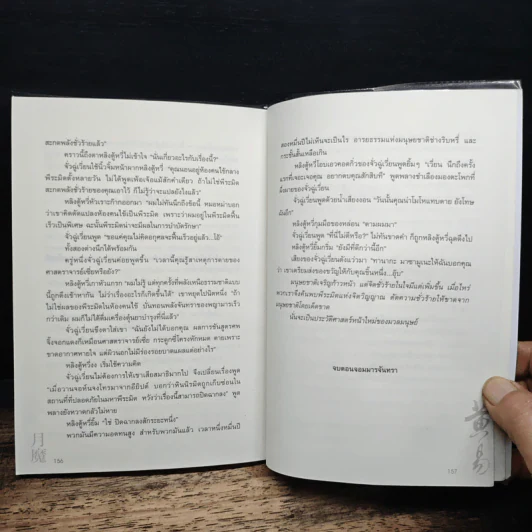 สะกดพลังชั่วร้ายแล้ว"
คราวนี้ถึงตาหลิงตู้หวีไม่เข้าใจ "นั่นเกี่ยวอะไรกับเรื่องนี้?"
จั่วจู่เวี่ยนใช้นิ้วจิ้มหน้าผากหลิงตู้หวี "คุณนอนอยู่ห้องคนใช้กลาง
พีระมิดตั้งหลายวัน ไม่ได้พูดเพ้อเจ้อแม้สักคำเดียว ถ้าไม่ใช่พีระมิด
สะกดพลังชั่วร้ายของคุณเอาไว้ ก็ไม่รู้ว่าจะแปลยังไงแล้ว"
หลิงตู้หวีหัวเราะก๊ากออกมา "ผมไม่ทันนึกถึงข้อนี้ หมอหม่าบอก
ว่าเขาคิดดัดแปลงห้องคนใช้เป็นพีระมิด เพราะว่าผมอยู่ในพีระมิดฟื้น
เร็วเป็นพิเศษ ฉะนั้นพีระมิดน่าจะมีผลในการบำบัดรักษา"
จั่วจู่เวี่ยนพูด "ขอแค่คุณไม่คิดอกุศลจะฟื้นเร็วอยู่แล้ว..โอ๊"
ทั้งสองต่างนึกได้พร้อมกัน
ครู่หนึ่งจั่วจู่เวี่ยนค่อยพูดขึ้น "เวลานี้คุณรู้สาเหตุการตายของ
ศาสตราจารย์เซี่ยหรือยัง?"
หลิงตู้หวีเกาหัวแกรก "ผมไม่รู้ แต่ทุกครั้งที่พลังเหนือธรรมชาติแบบ
นี้ถูกดึงเข้าหากัน ไม่ว่าเรื่องอะไรก็เกิดขึ้นได้" เขาหยุดไปนิดหนึ่ง "ถ้า
ไม่ใช่ผลของพีระมิดในห้องคนใช้ บั่นทอนพลังจักรพาลของพญามารเร็ว
กว่าเดิม ผมก็ไม่ได้ดื่มเครื่องอุ่นยาบำรุงที่นี่แล้ว"
จั่วจู่เวี่ยนขึงตาใส่เขา "ฉันยังไม่ได้บอกคุณ ผลการชันสูตรศพ
จิ้งจอกแดงก็เหมือนศาสตราจารย์เซี่ย กระดูกซี่โครงหักหมด ตายเพราะ
ขาดอากาศหายใจ แต่ผิวนอกไม่มีร่องรอยบาดแผลแต่อย่างไร"
หลิงตู้หวีงง เริ่มใช้ความคิด
จั่วจู่เวี่ยนไม่ต้องการให้เขาเสียสมาธิมากไป จึงเปลี่ยนเรื่องพูด
"เมื่อวานจอห์นจงโทรมาจากอียิปต์ บอกว่าหินนิรมิตถูกเก็บซ่อนใน
สถานที่ที่ปลอดภัยในมหาพีระมิด หวังว่าเรื่องนี้สามารถปิดฉากลง" พูด
พลางยังหวาดกลัวไม่หาย
หลิงตู้หวียิ้ม "ใช่ ปิดฉากลงสักระยะหนึ่ง"
พวกมันมีความอดทนสูง สำหรับพวกมันแล้ว เวลาหนึ่งหมื่นปี
月魔 156
สองหมื่นปีไม่เห็นจะเป็นไร อารยธรรมแห่งมนุษยชาติช่างริบหรี่ และ
กระชั้นสั้นเหลือเกิน
หลิงตู้หวีโอบเอวคอดกิ่วของจั่วจู่เวี่ยนพูดยิ้มๆ "เวี่ยน นึกถึงครั้ง
แรกที่เจอะเจอคุณ อยากตบคุณสักสิบที" พูดพลางชำเลืองมองตะโพกที่
ผึ่งผายของจั่วจู่เวี่ยน
จั่วจู่เวี่ยนพูดด้วยน้ำเสียงงอน "วันนั้นคุณน่าโมโหแทบตาย ยังโกรธ
หลิงตู้หวีกุมมือของหล่อน "ตามผมมา"
จั่วจู่เวี่ยนพูด "ที่นี่ไม่ดีหรือ?" ไม่ทันขาดคำ ก็ถูกหลิงตู้หวีฉุดดึงไป
หลิงตู้หวียิ้มกริ่ม "ยังมีที่ดีกว่านี้อีก"
เสียงของจั่วจู่เวี่ยนดังแว่วมา "ทานากะ มาซามูเนะให้ฉันบอกคุณ
ว่า เขาเตรียมส่งของขวัญให้กับคุณชิ้นหนึ่ง...อุ๊บ"
มนุษยชาติเจริญก้าวหน้า แต่จิตชั่วร้ายในใจมีแต่เพิ่มขึ้น เมื่อไหร่
พวกเราจึงค้นพบพีระมิดแห่งจิตวิญญาณ ตัดความชั่วร้ายให้ขาดจาก
มนุษยชาติโดยเด็ดขาด
นั่นจะเป็นประวัติศาสตร์หน้าใหม่ของมวลมนุษย์
จบตอนจอมมารจันทรา
黃易
157